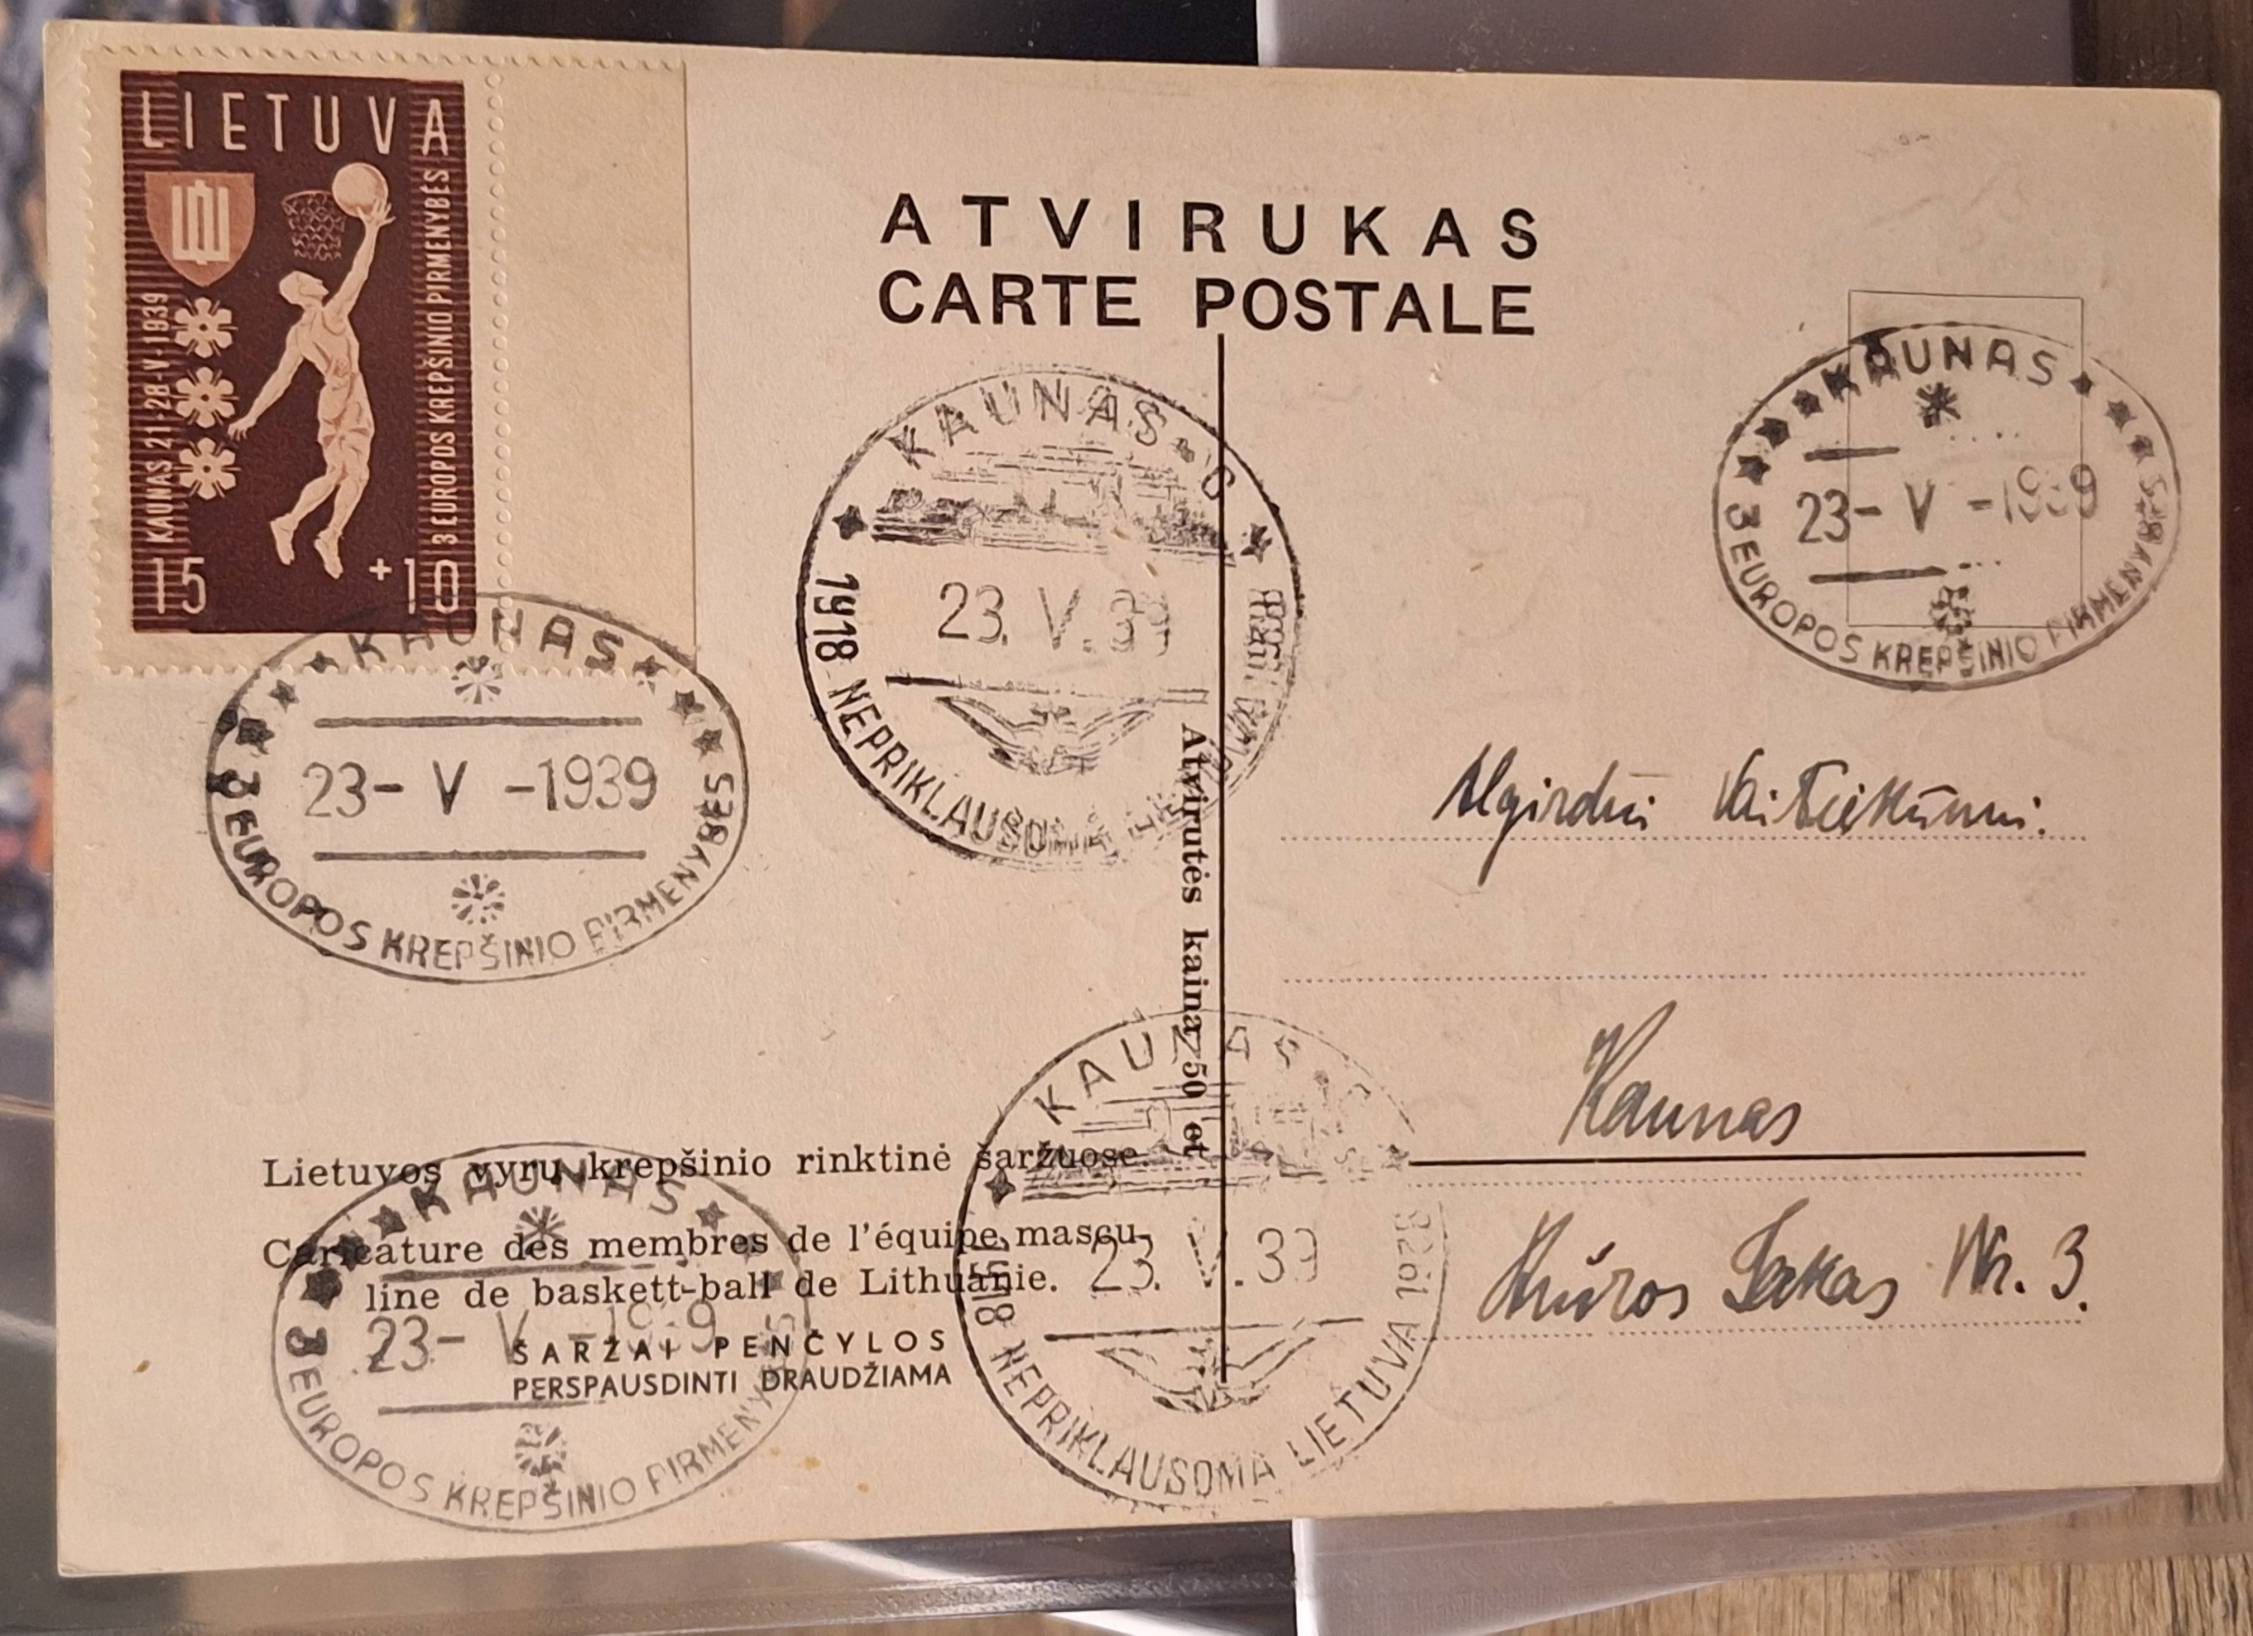 LIETUVA
KAUNAS 21-28-V-1939
3 EUROPOS KREPŠINIO PIRMENYBĖS
15 +10
ATVIRUKAS
CARTE POSTALE
KAUNAS
23-V-1939
3 EUROPOS KREPŠINIO PIRMENYBĖS
KAUNAS
23.V.39
1918 NEPRIKLAUSOMA
KAUNAS
23-V-1939
3 EUROPOS KREPŠINIO PIRMENYBĖS
Atvirutės kaina 50 ct
Algirdui Vaiteikūnui.
Kaunas
Mūros Takas Nr. 3.
Lietuvos vyrų krepšinio rinktinė šaržuose.
Caricature des membres de l'équipe mascu-
line de baskett-ball de Lithuanie.
ŠARŽAI PENČYLOS
PERSPAUSDINTI DRAUDŽIAMA
KAUNAS
23-V-1939
3 EUROPOS KREPŠINIO PIRMENYBĖS
KAUNAS
23.V.39
1918 NEPRIKLAUSOMA LIETUVA 1938